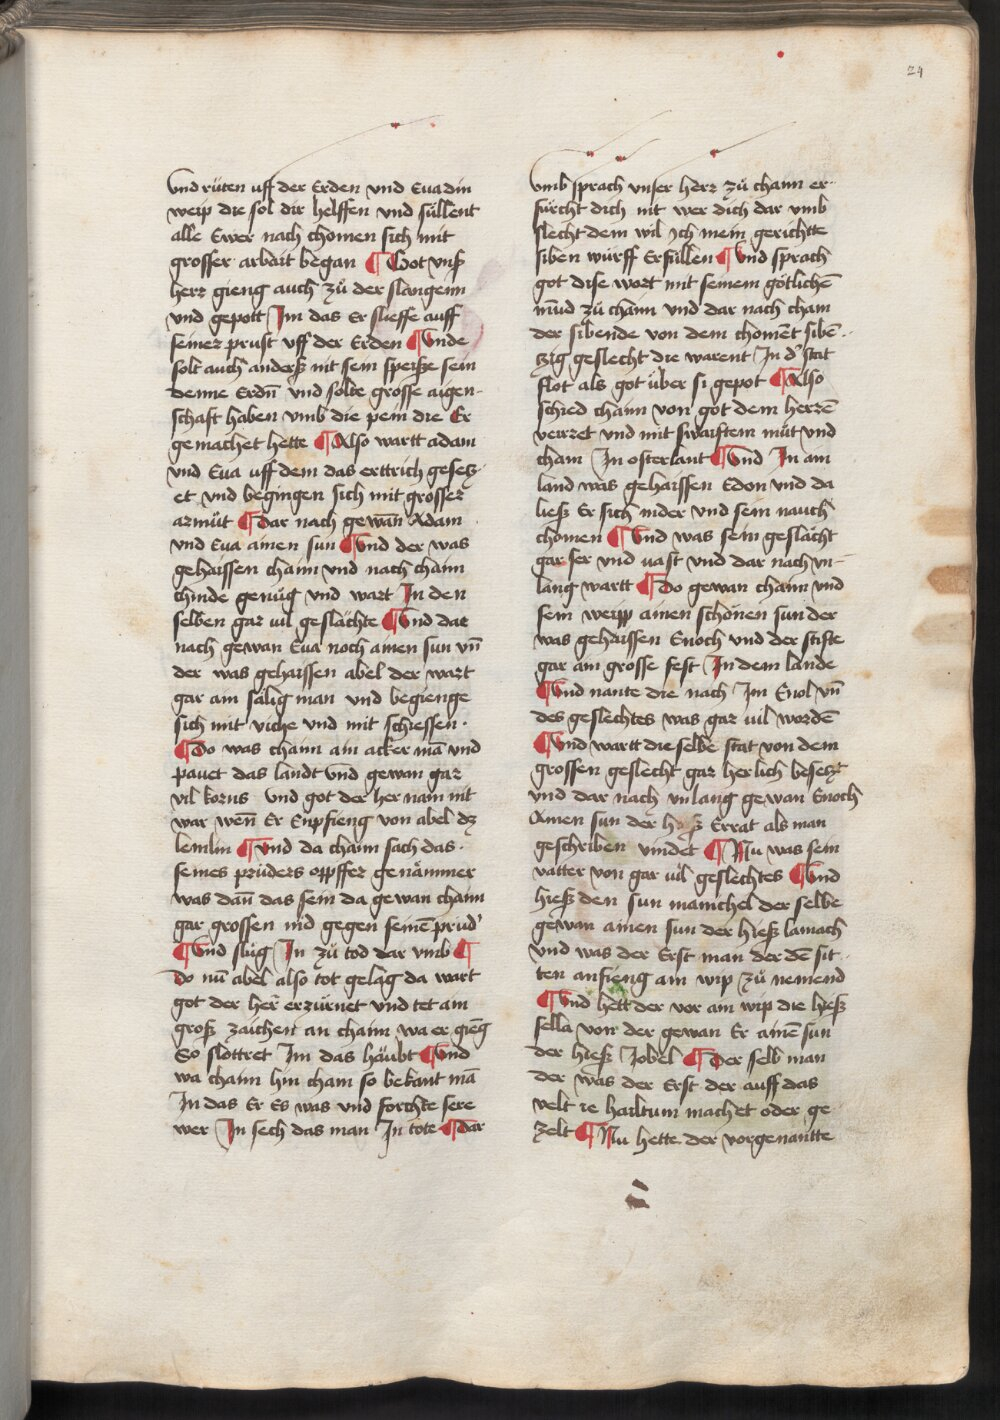 24
vnd rüten uff der Erden vnd Eua din
weip die sol dir helffen vnd süllent
alle Ewer nach chomen sich mit
grosser arbait began ¶ Got vnß
herz gieng auch zů der slangenn
vnd gepott Im das Er slieffe auff
seiner prust vff der Erden ¶ Vnde
solt auch anderß nit sein speiße sein
denne Erdn̄ vnd solte grosse aigen-
schaft haben vmb die pein die Er
gemachet hette ¶ Also wartt adam
vnd Eua uff dem das erttrich gesetz-
et vnd begingen sich mit grosser
armůt ¶ Dar nach gewan̄ Adam
vnd Eua ainen sun ¶ Vnd der was
gehaissen chaim vnd nach chaim
chinde genůg vnd wart In den
selben gar uil geslächte ¶ Vnd dar
nach gewan Eua noch ainen sun vn̄
der was gehaissen abel der wart
gar ain sälig man vnd begienge
sich mit viche vnd mit schiessen ·
¶ Do was chaim ain acker mā vnd
pauet das landt vnd gewan gar
vil korns vnd got der her nam nit
war wen̄ Er Enpfieng von abel dz
lemlin ¶ Vnd da chaim sach das ·
seines prüders oppffer genämmer
was dan̄ das sein da gewan chaim
gar grossen nid gegen seinē prud'
¶ Vnd slůg In zů tod dar vmb ¶
Do nu̅ abel also tot gelag da wart
got der her̄ erzürnet vnd tet am
groß zaichen an chaim wa er gieng
So slottret Im das häubt ¶ Vnd
wa chaim hin cham so bekant mā
In das Er Es was vnd forchte sere
wer In sech das man In tote ¶ Dar
vmb sprach vnser herz zů chaim er-
fürcht dich nit wer dich dar vmb
slecht dem wil ich mein gerichtte
siben würff Erfüllen ¶ Vnd sprach
got dise wort mit seinem götlichē
mu̅d zů chaim vnd dar nach cham
der sibende von dem chomēt sibē-
tzig geslecht die warent In d' stat
flot als got über si gepot ¶ Also
schied chaim von got dem herzē
verzet vnd mit swaiftem můt vnd
cham In osterlant ¶ Vnd In ain
land was gehaissen Edon vnd da
ließ Er sich nider vnd sein nauch
chomen ¶ Vnd was sein geslächt
gar ser vnd uast vnd dar nach vn-
lang wartt ¶ Do gewan chaim vnd
sein weipp ainen schönen sun der
was gehaissen Enoch vnd der stifte
gar ain grosse fest In dem lande
¶ Vnd nante die nach Im Enol vn̄
des geslechtes was gar uil wordē
¶ Vnd wartt die selbe stat von dem
grossen geslecht gar herlich besetzt
vnd dar nach vnlang gewan Enoch
Ainen sun der hieß Errat als man
geschriben vindet ¶ Nu was sein
vatter von gar uil geslechtes ¶ Vnd
hieß den sun mainchel der selbe
gewan ainen sun der hieß lamach
vnd was der Erst man der dē sit-
ten anfieng ain wip zů nemend
¶ Vnd hett der vor ain wip die hieß
sella von der gewan Er ainē sun
der hieß Jobel ¶ Der selb man
der was der Erst der auff das
velt ie hailtum machet oder ge
zelt ¶ Nu hette der vorgenantte